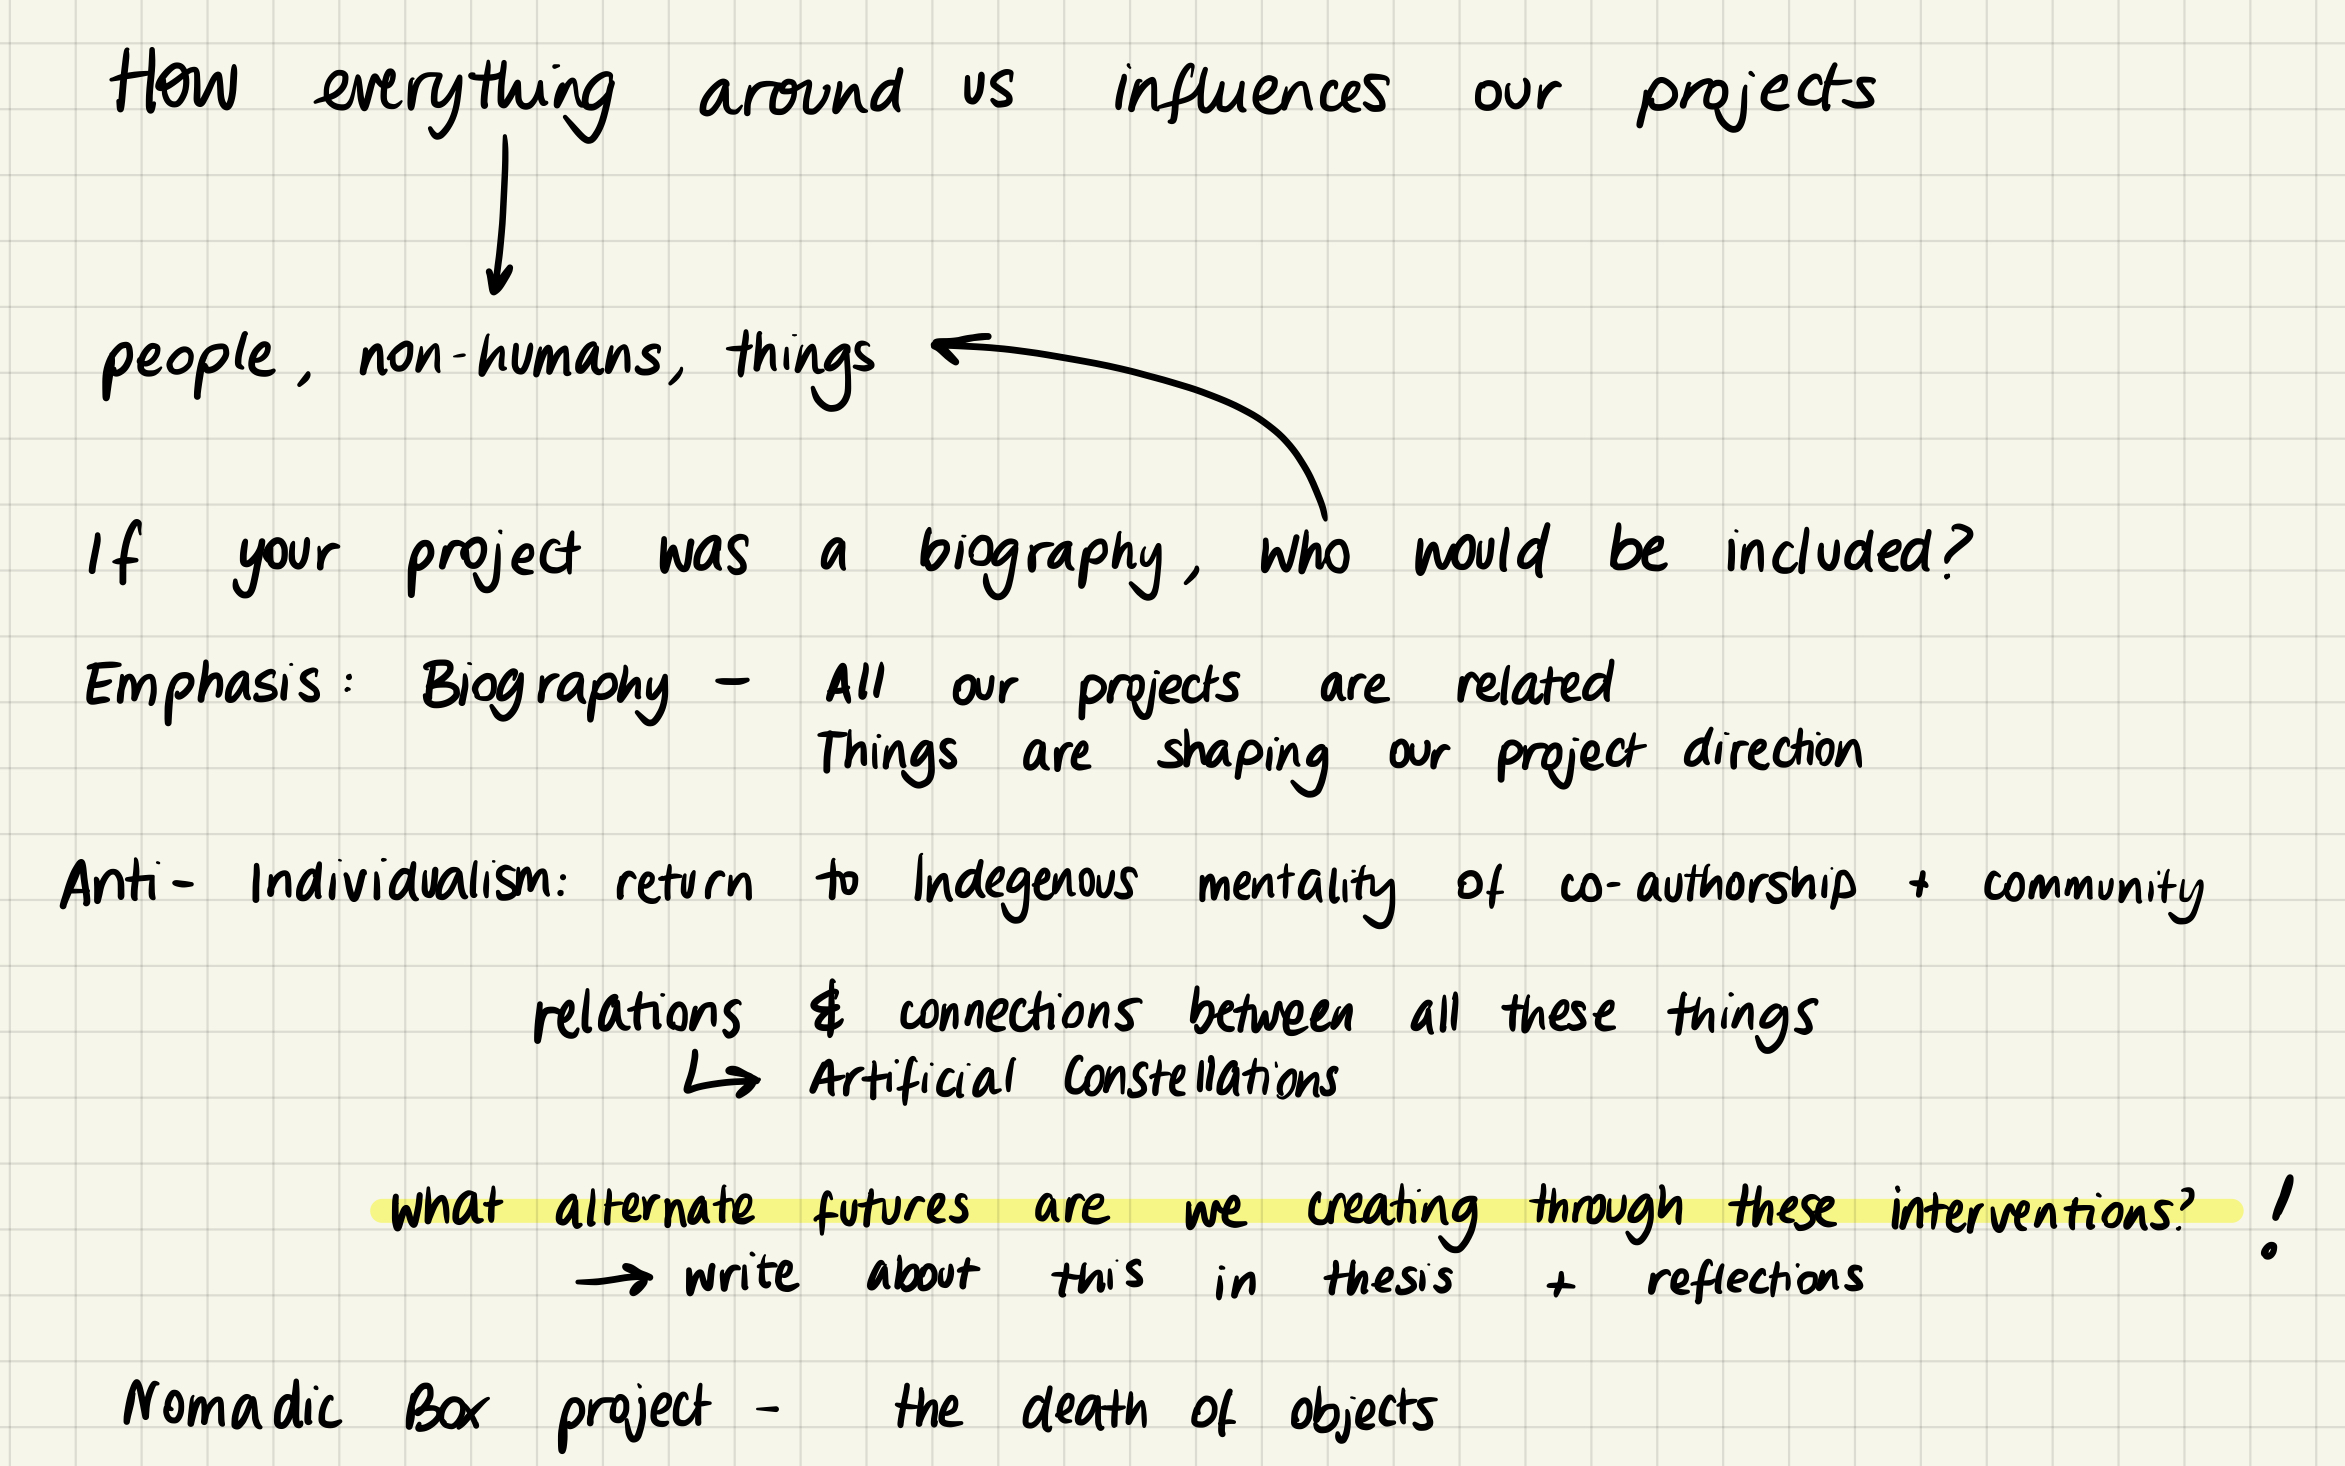 How everything around us influences our projects
people, non-humans, things
If your project was a biography, who would be included?
Emphasis: Biography - All our projects are related
Things are shaping our project direction
Anti- Individualism: return to Indegenous mentality of co-authorship + community
relations & connections between all these things
Artificial Constellations
what alternate futures are we creating through these interventions? !
write about this in thesis + reflections
Nomadic Box project - the death of objects